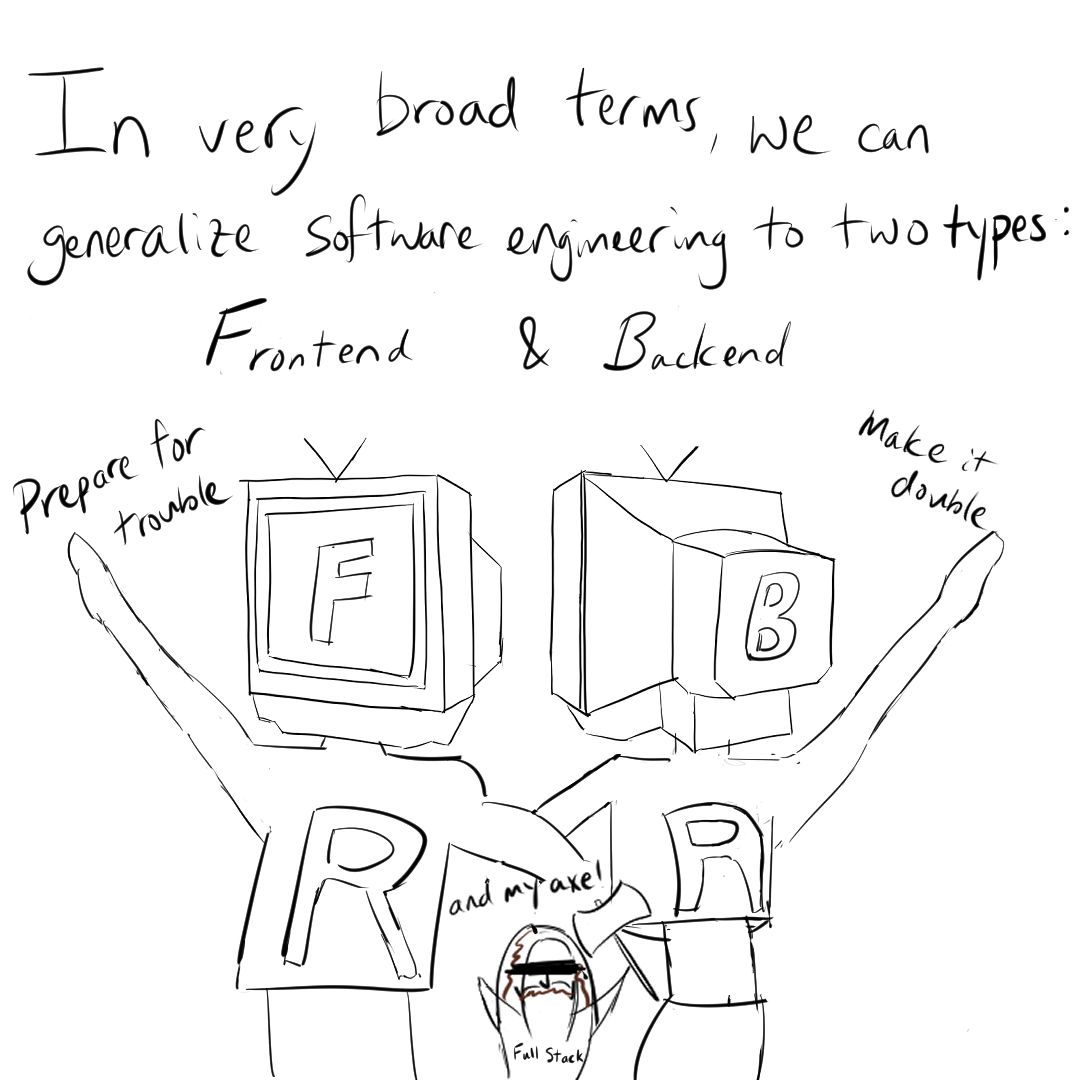 In very broad terms, we can
generalize software engineering to two types:
Frontend & Backend
Prepare for
trouble
Make it
double
F
B
R
R
and my axe!
Full Stack